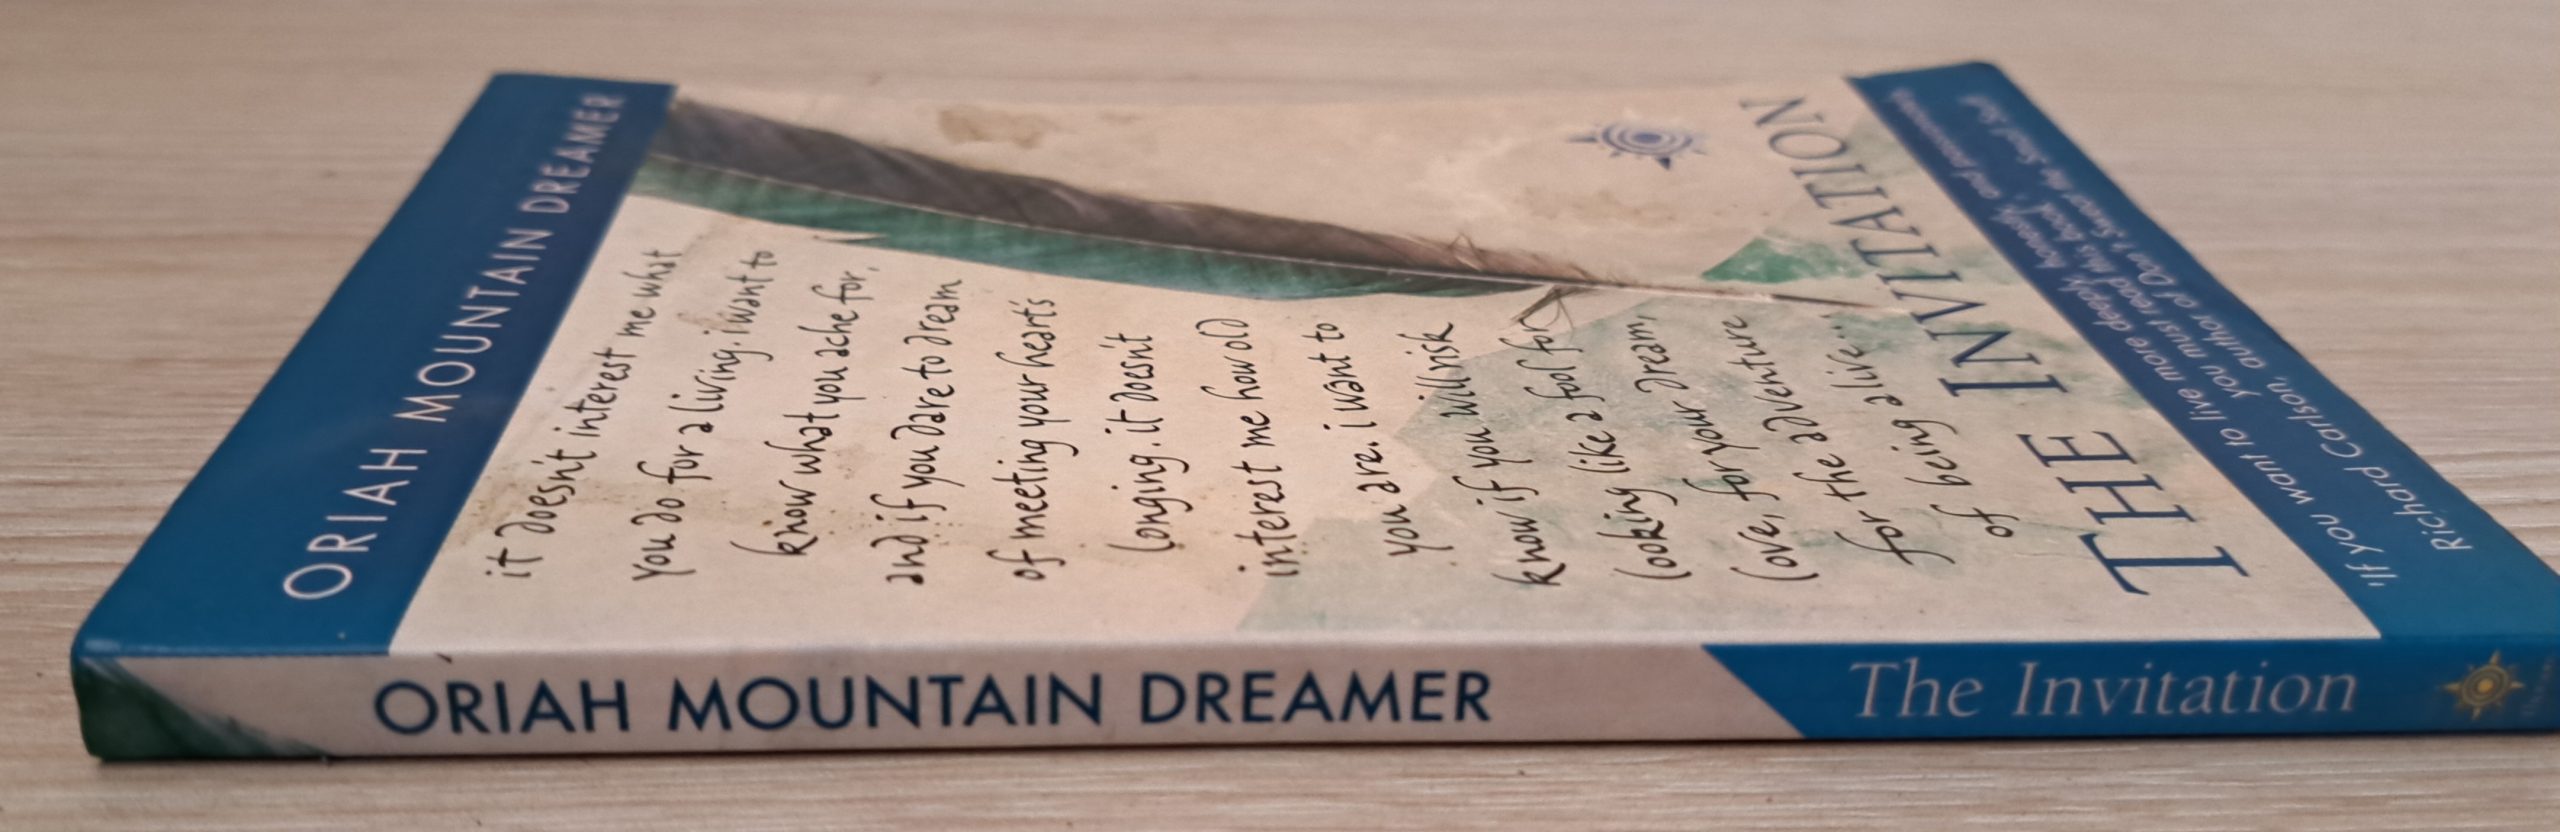 ORIAH MOUNTAIN DREAMER
it doesn't interest me what
you do for a living. i want to
know what you ache for,
and if you dare to dream
of meeting your heart's
longing. it doesn't
interest me how old
you are. i want to
know if you will risk
looking like a fool for
love, for your dream,
for the adventure
of being alive...
THE INVITATION
'If you want to live more deeply, honestly, and passionately,
you must read this book.'
Richard Carlson, author of Don't Sweat the Small Stuff
ORIAH MOUNTAIN DREAMER
The Invitation